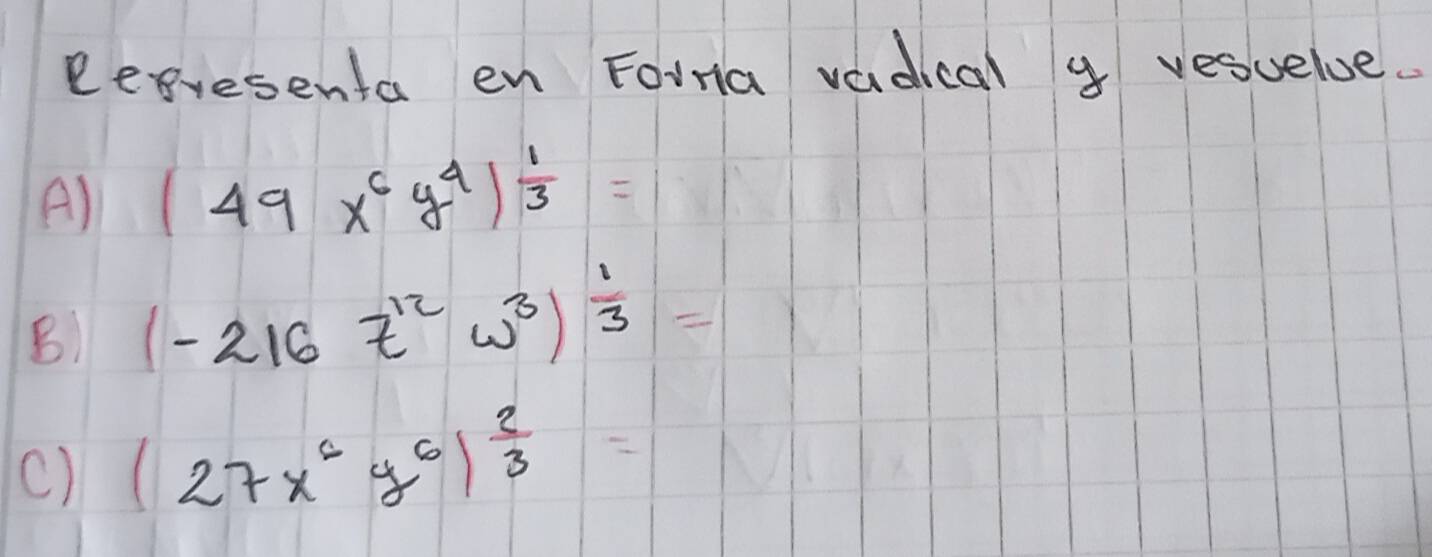 Representa en Forma radical y resuelve.
A) (49 x⁶ y⁴)^(1/3) =
B) (-216 z¹² w³)^(1/3) =
C) (27x⁶ y⁶)^(2/3) =